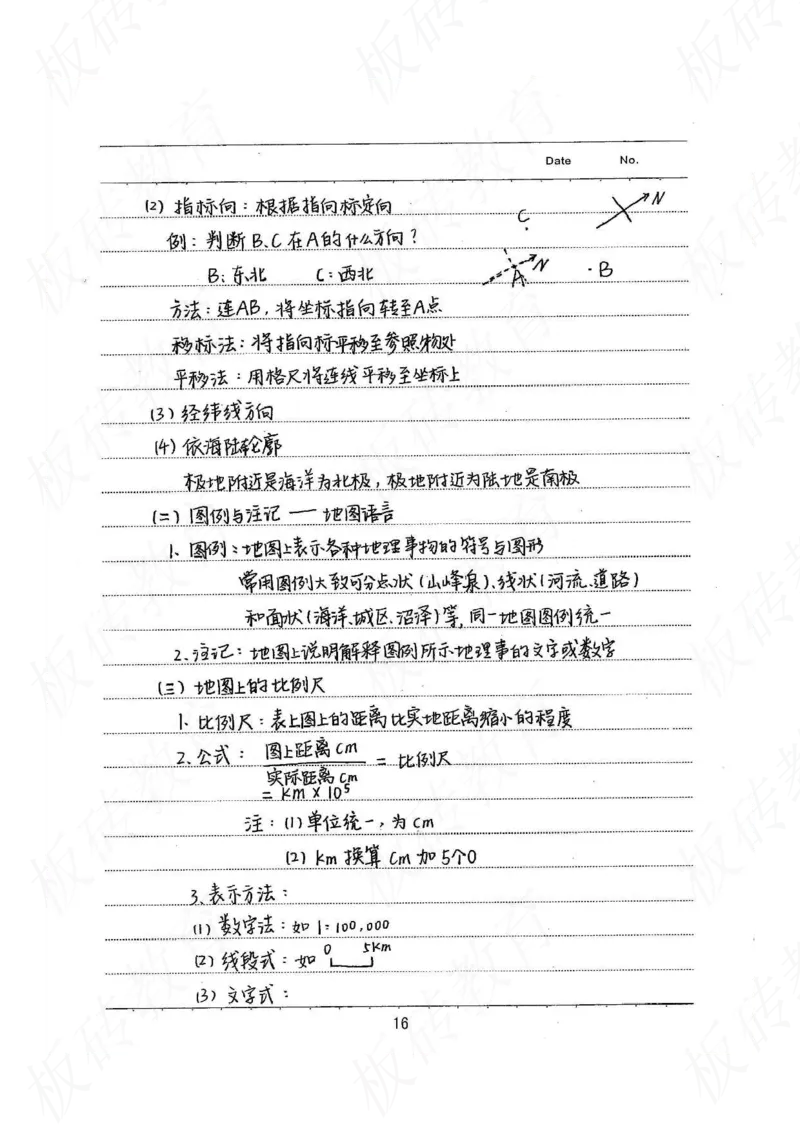 Date No.
(2) 指标向：根据指向标定向
例：判断B、C在A的什么方向？
B：东北 C：西北
C
N
N
A
·B
方法：连AB，将坐标指向转至A点
移标法：将指向标平移至参照物处
平移法：用格尺将连线平移至坐标上
(3) 经纬线方向
(4) 依海陆轮廓
极地附近是海洋为北极，极地附近为陆地是南极
(二) 图例与注记 — 地图语言
1、图例：地图上表示各种地理事物的符号与图形
常用图例大致可分点状(山峰泉)、线状(河流、道路)
和面状(海洋、城区、沼泽)等，同一地图图例统一
2、注记：地图上说明解释图例所示地理事的文字或数字
(三) 地图上的比例尺
1、比例尺：表上图上的距离比实地距离缩小的程度
2、公式：图上距离cm
实际距离cm = 比例尺
= km × 10⁵
注：(1)单位统一，为cm
(2) km 换算 cm 加5个0
3、表示方法：
(1) 数字法：如 1：100,000
(2) 线段式：如 0 5km
(3) 文字式：
16
板砖教育